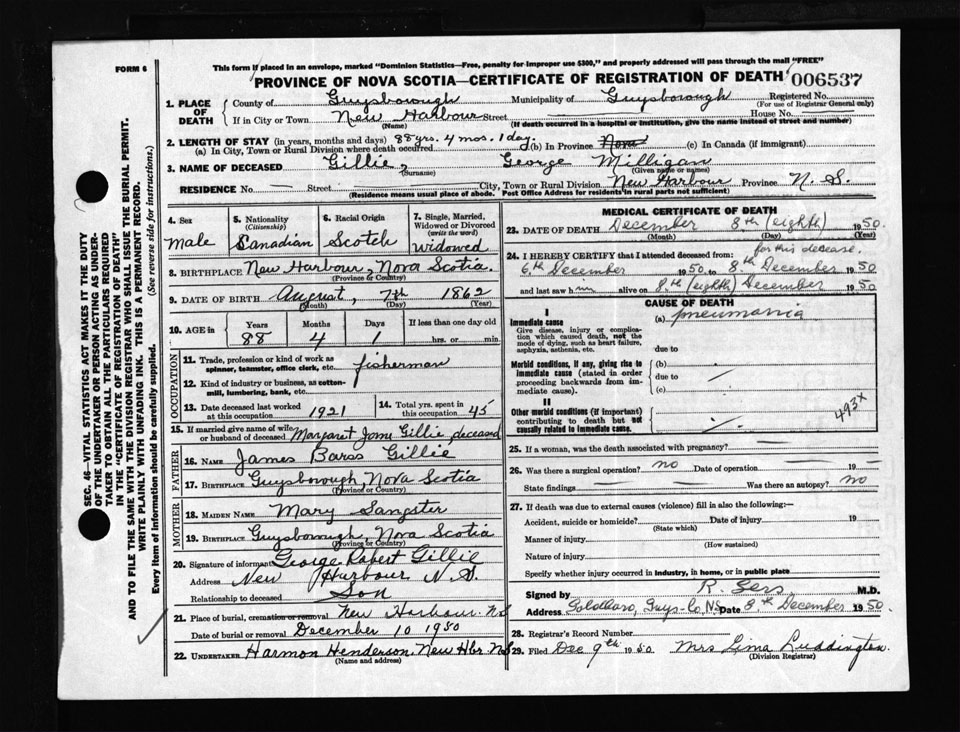 FORM 6
This form if placed in an envelope, marked "Dominion Statistics—Free, penalty for improper use $300," and properly addressed will pass through the mail "FREE"
PROVINCE OF NOVA SCOTIA—CERTIFICATE OF REGISTRATION OF DEATH 006537
1. PLACE OF DEATH
County of Guysborough Municipality of Guysborough Registered No.
(For use of Registrar General only)
If in City or Town New Harbour Street — House No. —
(Name) (If death occurred in a hospital or institution, give the name instead of street and number)
2. LENGTH OF STAY (in years, months and days) 88 yrs. 4 mos. 1 day
(a) In City, Town or Rural Division where death occurred (b) In Province Nova (c) In Canada (if immigrant)
3. NAME OF DECEASED Gillie, George Milligan
(Surname) (Given name or names)
RESIDENCE No. — Street City, Town or Rural Division New Harbour Province N. S.
(Residence means usual place of abode. Post Office Address for residents in rural parts not sufficient)
4. Sex
Male
5. Nationality
(Citizenship)
Canadian
6. Racial Origin
Scotch
7. Single, Married, Widowed or Divorced
(write the word)
Widowed
8. BIRTHPLACE New Harbour, Nova Scotia.
(Province or Country)
9. DATE OF BIRTH August, 7th 1862
(Month) (Day) (Year)
10. AGE in Years Months Days If less than one day old
88 4 1 hrs. or min.
OCCUPATION
11. Trade, profession or kind of work as spinner, teamster, office clerk, etc. fisherman
12. Kind of industry or business, as cotton-mill, lumbering, bank, etc.
13. Date deceased last worked at this occupation 1921
14. Total yrs. spent in this occupation 45
15. If married give name of wife or husband of deceased Margaret Jane Gillie, deceased
FATHER
16. NAME James Barss Gillie
17. BIRTHPLACE Guysborough, Nova Scotia
(Province or Country)
MOTHER
18. MAIDEN NAME Mary Sangster
19. BIRTHPLACE Guysborough, Nova Scotia
(Province or Country)
20. Signature of informant George Robert Gillie
Address New Harbour N. S.
Relationship to deceased Son
21. Place of burial, cremation or removal New Harbour. N S
Date of burial or removal December 10 1950
22. UNDERTAKER Harmon Henderson. New Hbr. N S
(Name and address)
MEDICAL CERTIFICATE OF DEATH
23. DATE OF DEATH December 8th (eighth) 1950
(Month) (Day) (Year)
24. I HEREBY CERTIFY that I attended deceased from: for this disease.
6th December 1950 to 8th December 1950
and last saw him alive on 8th (eighth) December 1950
CAUSE OF DEATH
I
Immediate cause (a) pneumonia
Give disease, injury or complication which caused death, not the mode of dying, such as heart failure, asphyxia, asthenia, etc.
due to
Morbid conditions, if any, giving rise to immediate cause (stated in order proceeding backwards from immediate cause).
(b)
due to
(c)
II
Other morbid conditions (if important) contributing to death but not causally related to immediate cause.
493X
25. If a woman, was the death associated with pregnancy? —
26. Was there a surgical operation? no Date of operation — 19 —
State findings — Was there an autopsy? no
27. If death was due to external causes (violence) fill in also the following:—
Accident, suicide or homicide? Date of injury 19
(State which)
Manner of injury
(How sustained)
Nature of injury
Specify whether injury occurred in industry, in home, or in public place
Signed by M.D.
Address Guys-Co, N.S. Date 8th December 1950.
28. Registrar's Record Number
29. Filed Dec 9th 1950 Mrs Lima Luddington.
(Division Registrar)
SEC. 46—VITAL STATISTICS ACT MAKES IT THE DUTY
OF THE UNDERTAKER OR PERSON ACTING AS UNDERTAKER
TO OBTAIN ALL THE PARTICULARS REQUIRED
IN THE "CERTIFICATE OF REGISTRATION OF DEATH"
AND TO FILE THE SAME WITH THE DIVISION REGISTRAR WHO SHALL ISSUE THE BURIAL PERMIT.
WRITE PLAINLY WITH UNFADING INK. THIS IS A PERMANENT RECORD.
Every item of information should be carefully supplied. (See reverse side for instructions.)